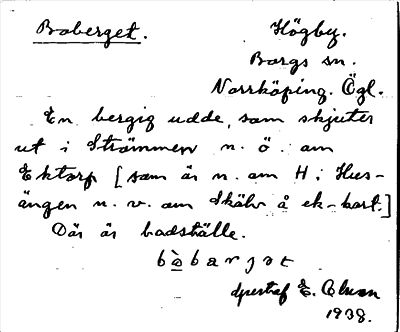 Boberget.
Högby.
Borgs sn.
Norrköping. Ögl.
En bergig udde, som skjuter
ut i Strömmen n. ö. om
Ektorp [som är n. om H i Hus-
ängen n. v. om Skälv å ek-kart.]
Där är badställe.
bò̤barjət
E. Olson
1938.